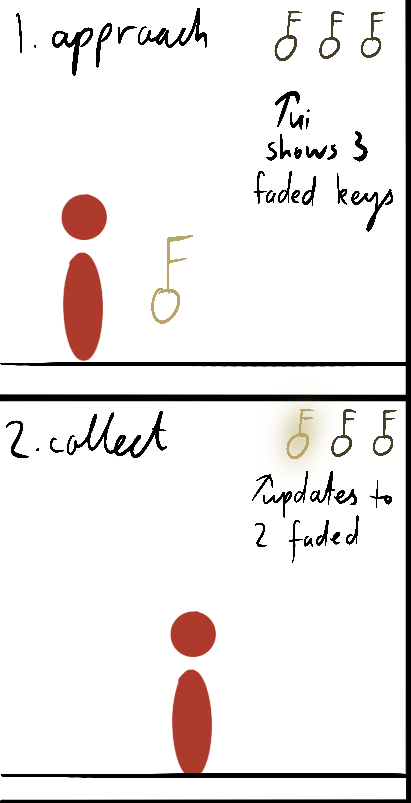 1. approach
↑ui
shows 3
faded keys
2. collect
↑updates to
2 faded